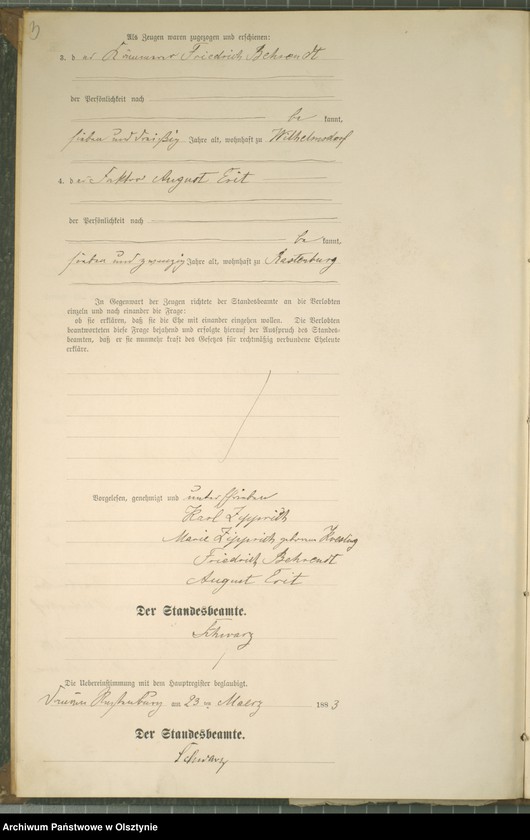 3
Als Zeugen waren zugezogen und erschienen:
3. der Kämmerer Friedrich Behrendt
der Persönlichkeit nach
be kannt,
sieben und dreißig Jahre alt, wohnhaft zu Wilhelmsdorf
4. der Faktor August Erit
der Persönlichkeit nach
be kannt,
sieben und zwanzig Jahre alt, wohnhaft zu Rastenburg
In Gegenwart der Zeugen richtete der Standesbeamte an die Verlobten
einzeln und nach einander die Frage:
ob sie erklären, daß sie die Ehe mit einander eingehen wollen. Die Verlobten
beantworteten diese Frage bejahend und erfolgte hierauf der Ausspruch des Standes-
beamten, daß er sie nunmehr kraft des Gesetzes für rechtmäßig verbundene Eheleute
erkläre.
Vorgelesen, genehmigt und unterschrieben
Karl Zipprich
Marie Zipprich geborne
Friedrich Behrendt
August Erit
Der Standesbeamte.
Schwarz
Die Uebereinstimmung mit dem Hauptregister beglaubigt.
Rastenburg am 23 ten Maerz 1883
Der Standesbeamte.
Schwarz
Archiwum Państwowe w Olsztynie